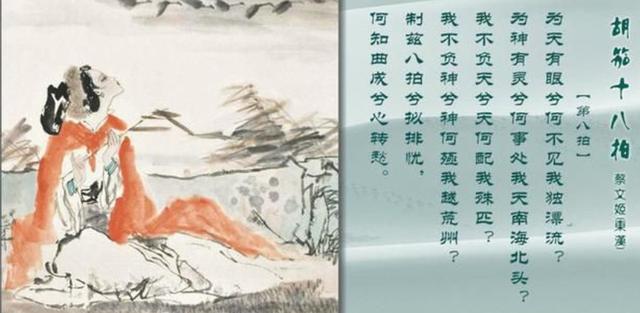 胡笳十八拍
【第八拍】
蔡文姬(東漢)
为天有眼兮何不见我独漂流？
为神有灵兮何事处我天南海北头？
我不负天兮天何配我殊匹？
我不负神兮神何殛我越荒州？
制兹八拍兮拟排忧，
何知曲成兮心转愁。